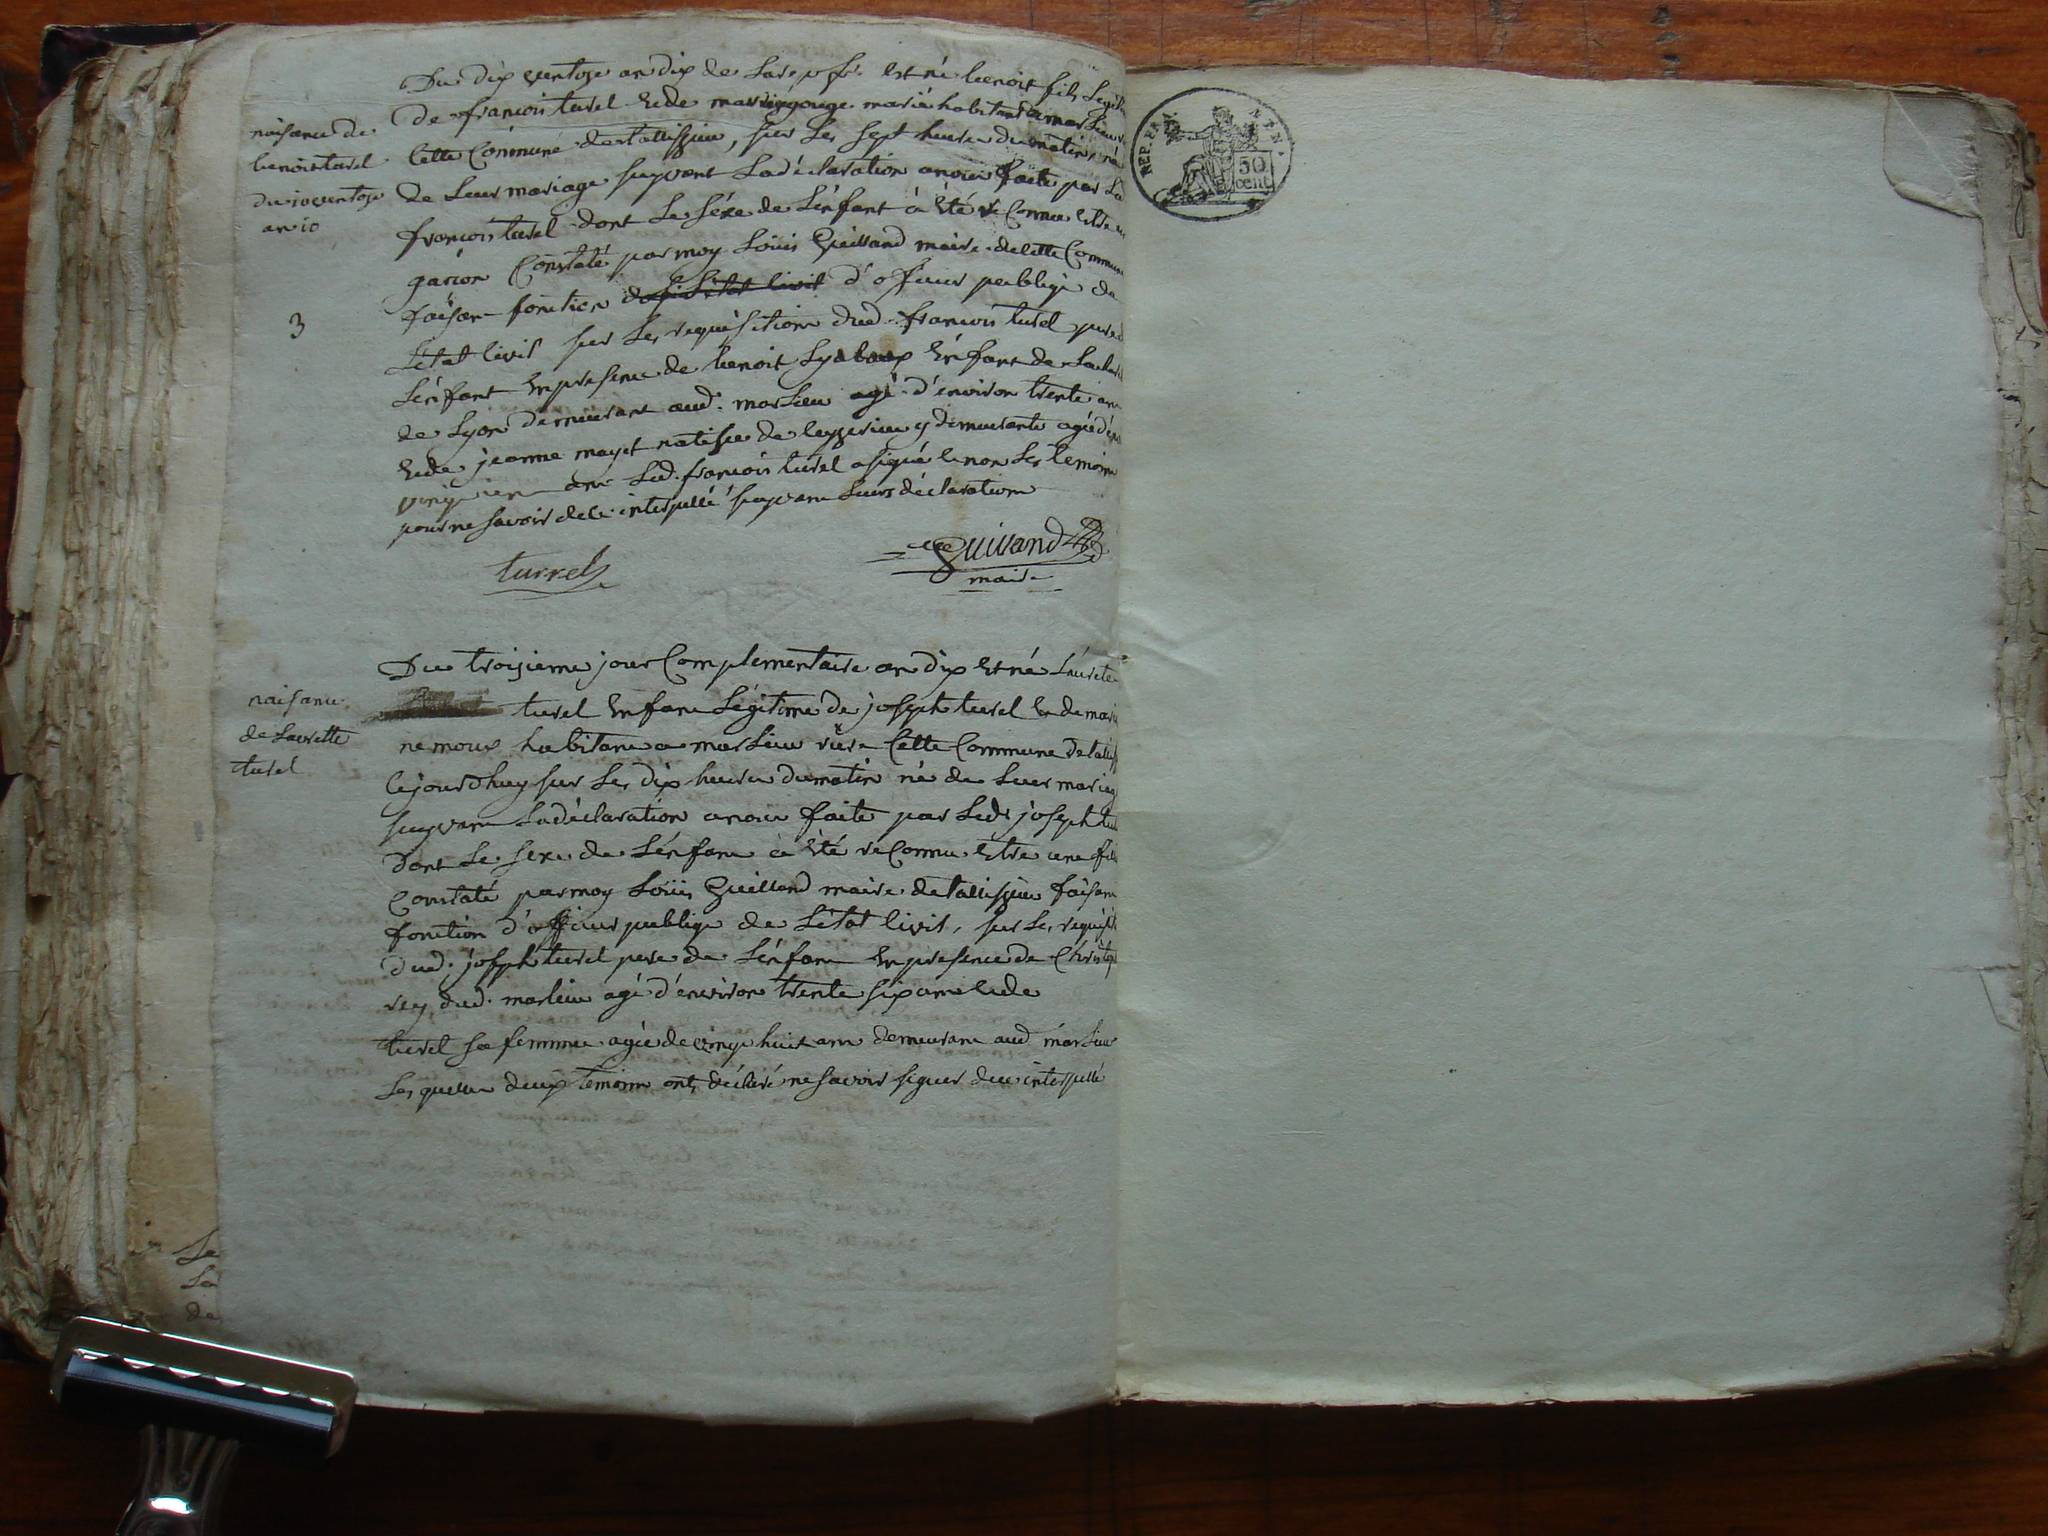 Du dix ventose an dix de la rep fr. est né benoit fils legit
de françois turel et de marie gouge mariés habitant a marlieu
naisance de
benoit turel
du 10 ventose
an 10
cette Commune de tallissieu, sur les sept heure du matin, né
de leur mariage suyvant la déclaration a nous faite par led
françois turel dont le séxe de l'énfant à été reConnu estre un
garçon Constaté par moy Loüis Guilland maire de cette Commune
faisan fonction de l'état civil d'officier publiqe de
3
l'état civil sur les requisition dud. françois turel pere d
l'énfant En presence de benoit Enfant de la
de Lyon demeurant aud. marlieu agé d'environ trente an
et de jeanne mayet natifve de y demeurante agée d'é
vingt an led. françois turel a signé et non les temoin
pour ne savoir de ce interpellé suyvan leurs déclaration
turrel
Guilland
maire
Du troizieme jour Complementaire an dix est né Laurete
naisance
de Laurette
turel
turel Enfan Légitime de joseph turel et de mari
nemoux habitan a marlieu rière Cette Commune de tallis
cejourdhuy sur les dix heure du matin né de leur mariag
suyvan la déclaration a nous faite par led. joseph tu
Dont le sexe de l'énfan à été reConnu estre une fil
Constaté par moy Loüis Guilland maire de tallissieu faisan
fonction d'officier publiqe de l'état civil, sur les requisit
dud. joseph turel pere de l'énfan En presence de Christop
rey dud. marlieu agé d'environ trente six ans et de
turel sa femme agée de vingt huit ann demeuran aud marlieu
Lesquelle deux temoin ont déclaré ne savoir signer de ce interpellé
REP. FRA
50
cent
Le
La
de